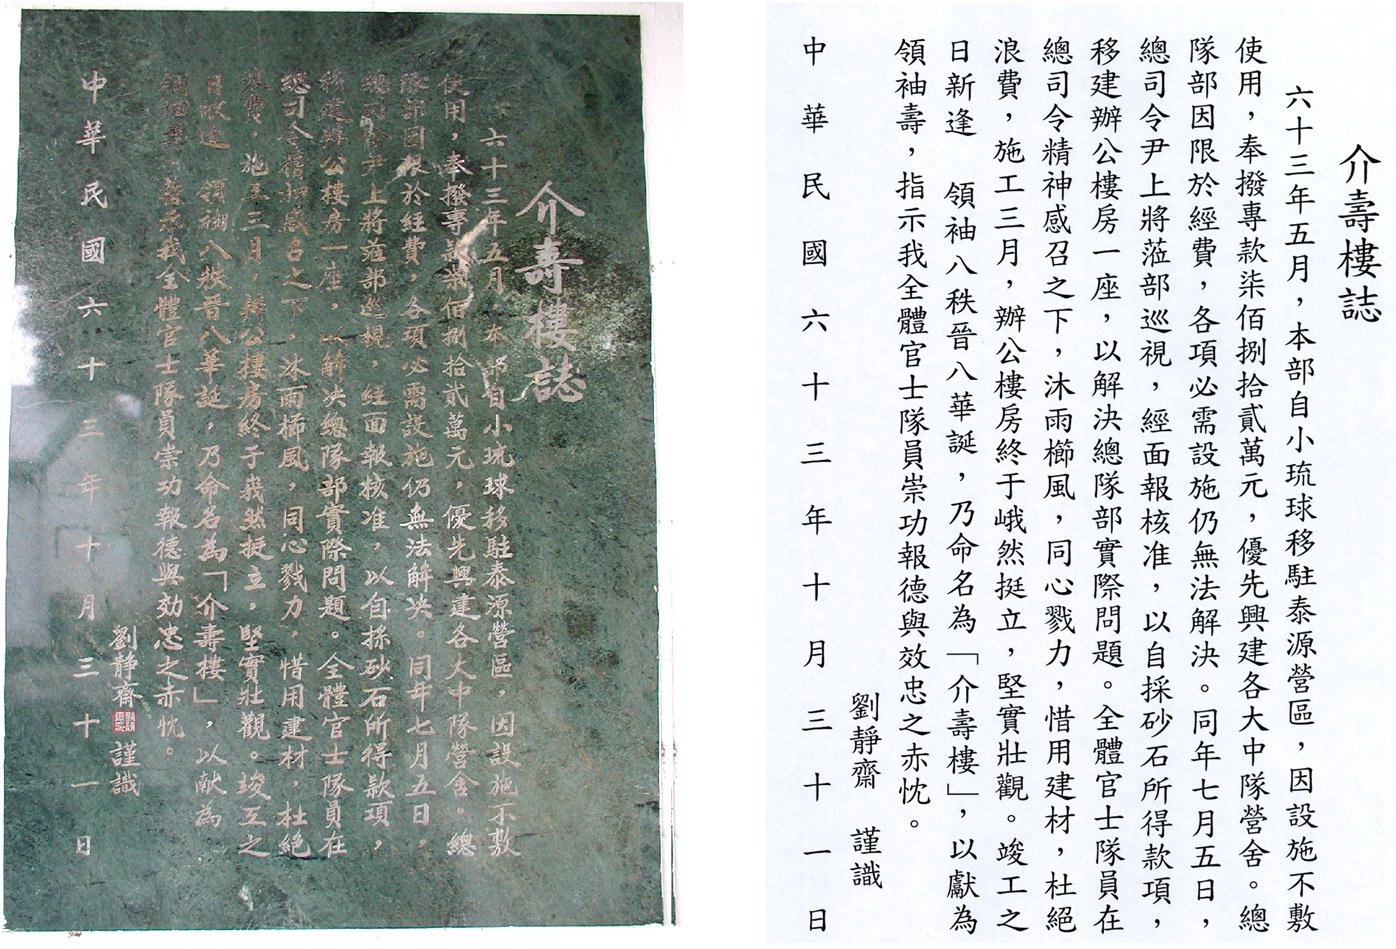 介壽樓誌
六十三年五月，本部自小琉球移駐泰源營區，因設施不敷
使用，奉撥專款柒佰捌拾貳萬元，優先興建各大中隊營舍。總
隊部因限於經費，各項必需設施仍無法解決。同年七月五日，
總司令尹上將蒞部巡視，經面報核准，以自採砂石所得款項，
移建辦公樓房一座，以解決總隊部實際問題。全體官士隊員在
總司令精神感召之下，沐雨櫛風，同心戮力，惜用建材，杜絕
浪費，施工三月，辦公樓房終于峨然挺立，堅實壯觀。竣工之
日欣逢　領袖八秩晉八華誕，乃命名為「介壽樓」，以献為
領袖壽，藉示我全體官士隊員崇功報德與効忠之赤忱。
劉靜齋　謹識
中華民國六十三年十月三十一日
介壽樓誌
六十三年五月，本部自小琉球移駐泰源營區，因設施不敷
使用，奉撥專款柒佰捌拾貳萬元，優先興建各大中隊營舍。總
隊部因限於經費，各項必需設施仍無法解決。同年七月五日，
總司令尹上將蒞部巡視，經面報核准，以自採砂石所得款項，
移建辦公樓房一座，以解決總隊部實際問題。全體官士隊員在
總司令精神感召之下，沐雨櫛風，同心戮力，惜用建材，杜絕
浪費，施工三月，辦公樓房終于峨然挺立，堅實壯觀。竣工之
日新逢　領袖八秩晉八華誕，乃命名為「介壽樓」，以獻為
領袖壽，指示我全體官士隊員崇功報德與效忠之赤忱。
劉靜齋　謹識
中華民國六十三年十月三十一日